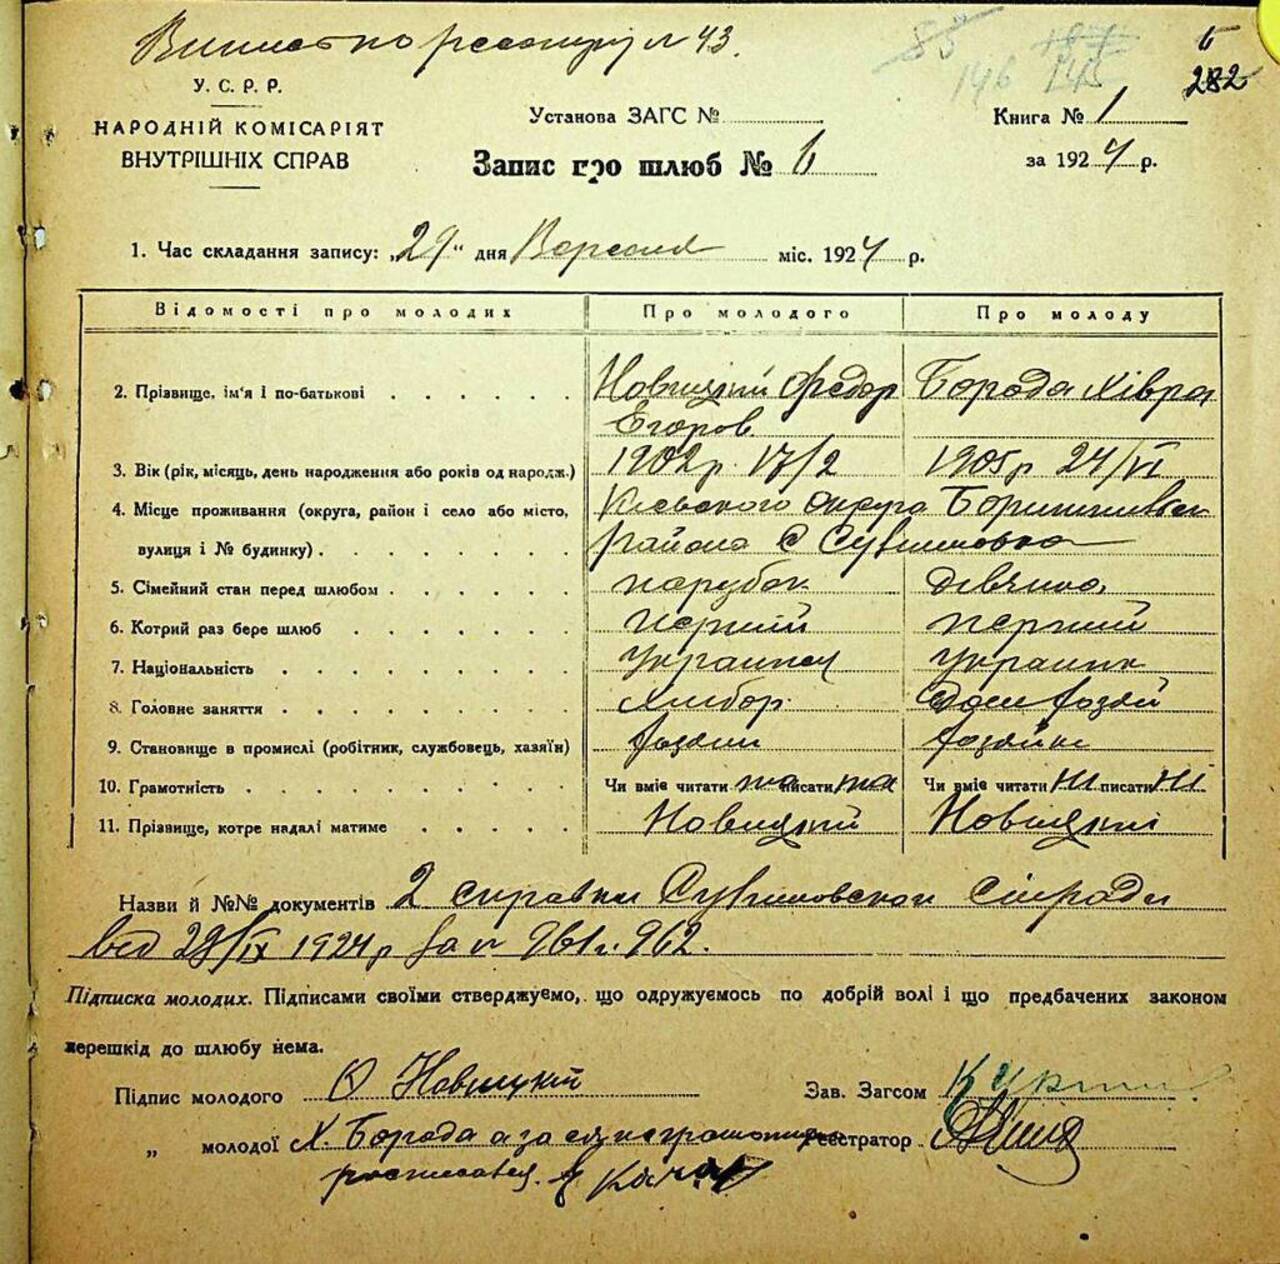 по № 43.
85 187 6
146 145 282
У. С. Р. Р.
НАРОДНІЙ КОМІСАРІЯТ
ВНУТРІШНІХ СПРАВ
Установа ЗАГС №
Запис про шлюб № 6
Книга № 1
за 1924 р.
1. Час складання запису: „29“ дня Вересня міс. 1924 р.
Відомості про молодих Про молодого Про молоду
2. Прізвище, ім'я і по-батькові Новицкий Федор Борода Хівра
Егоров.
3. Вік (рік, місяць, день народження або років од народж.) 1902 р. 17/2 1905 р 24/VI
4. Місце проживання (округа, район і село або місто, Киевского округа
вулиця і № будинку) района С
5. Сімейний стан перед шлюбом парубок дівчина
6. Котрий раз бере шлюб перший перший
7. Національність Украинец Украинк
8. Головне заняття Хлибор. Дом хозяй
9. Становище в промислі (робітник, службовець, хазяїн) хозяин хозяйка
10. Грамотність Чи вміє читати та писати та Чи вміє читати ні писати ні
11. Прізвище, котре надалі матиме Новицкий Новицкі
Назви й №№ документів 2 справки Сільради
від 1924 р за № 961 и 962.
Підписка молодих. Підписами своїми стверджуємо, що одружуємось по добрій волі і що предбачених законом
перешкід до шлюбу нема.
Підпис молодого Ф Новицкий Зав. Загсом
„ молодої Х. Борода а за Реєстратор
росписався